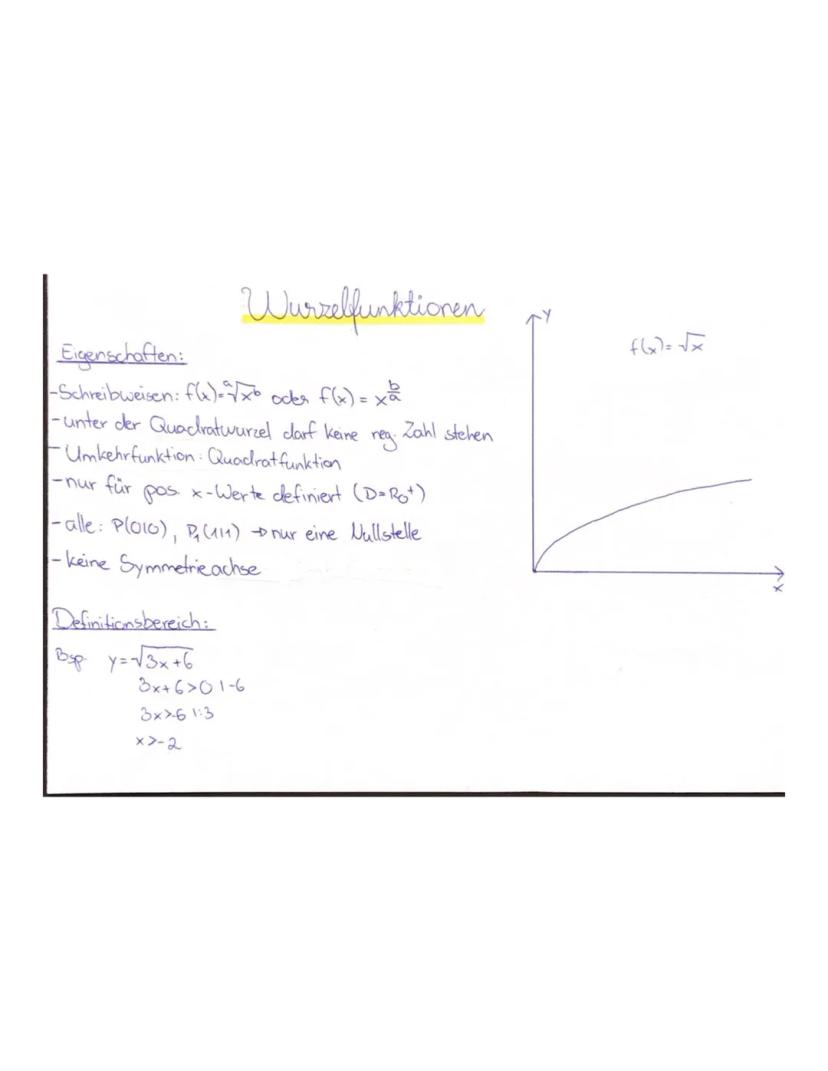 Wurzelfunktionen
Eigenschaften:
-Schreibweisen: f(x)=ᵃ√xᵇ oder f(x) = x^(b/a)
-unter der Quadratwurzel darf keine neg. Zahl stehen
-Umkehrfunktion: Quadratfunktion
-nur für pos. x-Werte definiert (D=R₀⁺)
-alle: P(0|0), P₁(1|1) → nur eine Nullstelle
-keine Symmetrieachse
Definitionsbereich:
Bsp. y=√3x+6
3x+6>0 |-6
3x>-6 |:3
x>-2
y
f(x)=√x
x